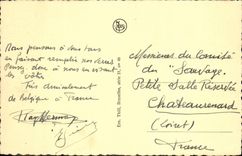 Nous pensons à vous tous
en faisant remplir nos verres
Pensez donc à nous en vidant
les vôtres
Très amicalement
de Belgique à France
NELS
Ern. Thill, Bruxelles, série 21, n°
Messieurs du Comité
du "Sauvage"
Petite Salle Réservée
Chateaurenard
(Loiret)
France